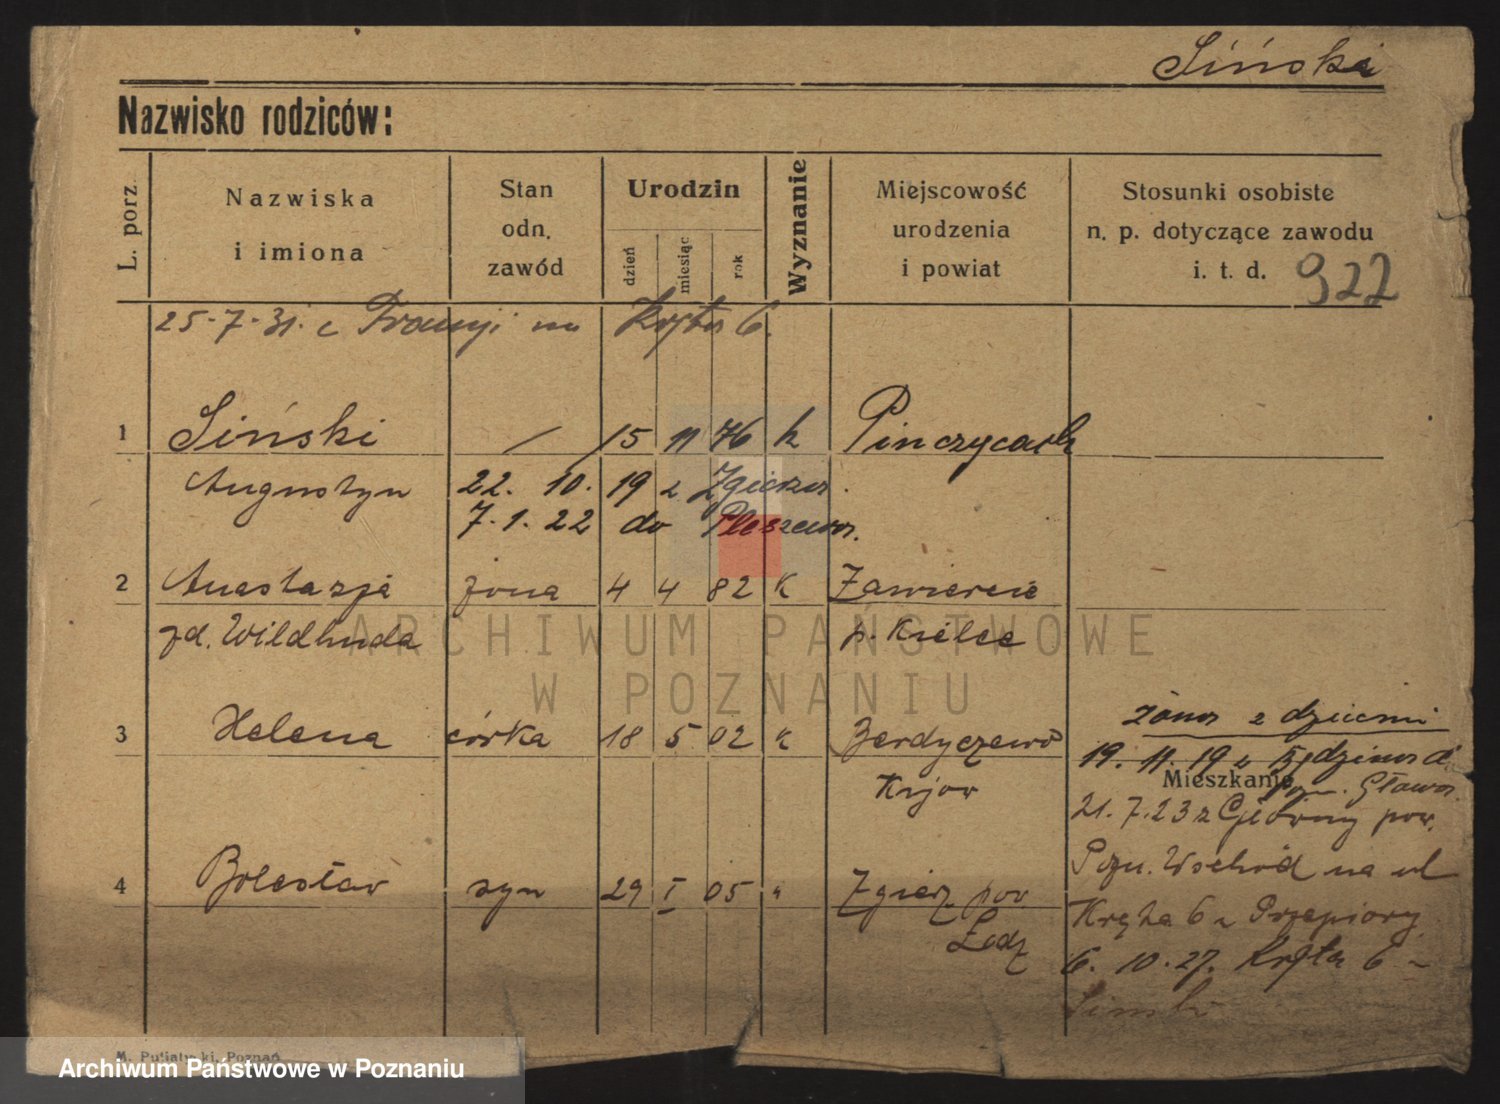 Siński
Nazwisko rodziców:
L. porz.
Nazwiska
i imiona
Stan
odn.
zawód
Urodzin
dzień
miesiąc
rok
Wyznanie
Miejscowość
urodzenia
i powiat
Stosunki osobiste
n. p. dotyczące zawodu
i. t. d. 922
25-7-31. z Francji na Kręta 6.
1 Siński / 15 11 76 k Pinczycach
Augustyn 22. 10. 19 z Zgierza.
7. 1. 22 do Pleszewa.
2 Anastazja żona 4 4 82 K Zawiercie
zd. Wildhuda p. Kielce
ARCHIWUM PAŃSTWOWE
W POZNANIU
3 Helena córka 18 5 02 k Berdyczewo
Kijow
żona z dziećmi
19. 11. 19 z
Mieszkanie
21. 7. 23 z Główny pow.
4 Bolesław syn 29 I 05 " Zgierz pow
Łodz
Pozn. Wschód na ul
Kręta 6 u Przepiory
6. 10. 27. Kręta 6 -
M. Putiatycki, Poznań
Archiwum Państwowe w Poznaniu